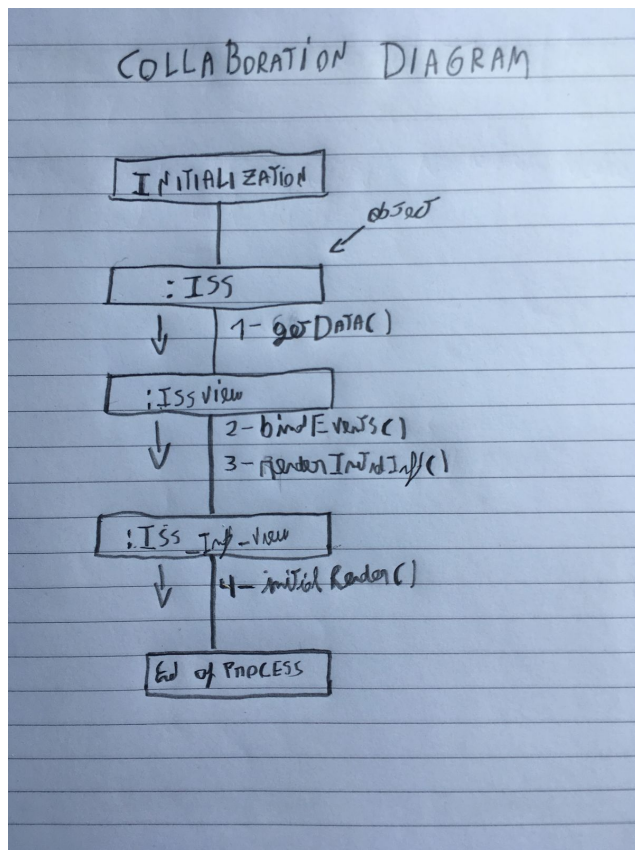 COLLABORATION DIAGRAM
INITIALIZATION
object
:ISS
1- getDATA()
:ISSView
2- bindEvents()
3- RenderInitialInf()
:ISS_Inf_View
4- initialRender()
End of PROCESS